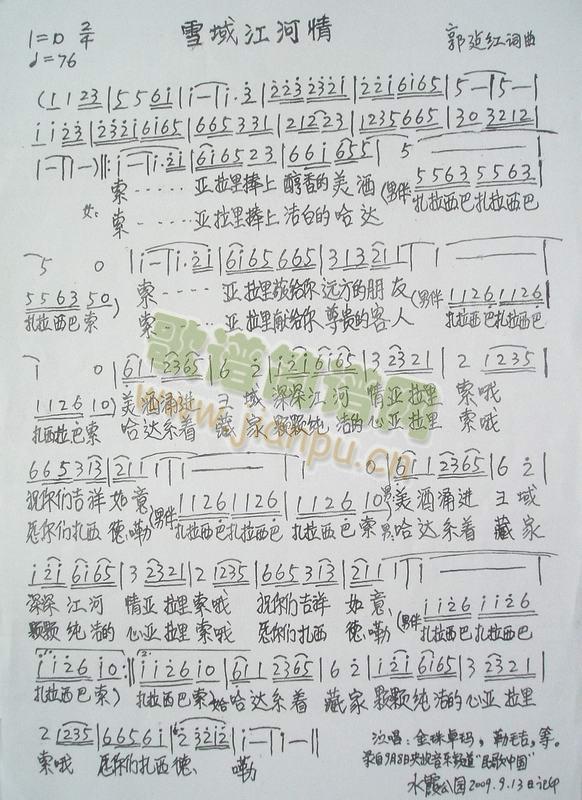 1=D 2/4 雪域江河情 郭延红词曲
♩=76
(1 1 2 3 | 5 5 6 i | i — | i · 2 | 2 2 3 2 3 2 i | 2 2 i 6 i 6 5 | 5 — | 5 — |
i i 2 3 | 2 3 2 i 6 i 6 5 | 6 6 5 3 3 1 | 2 1 2 2 3 | 1 2 3 5 6 6 5 | 3 0 3 2 1 2 |
1 — | 1 —) ‖: i — | i · 2 i | 6 i 6 5 2 3 | 6 6 i 6 5 5 | 5 —
女: 索····· 亚拉里捧上 醇香的美酒 (男伴 5 5 6 3 5 5 6 3
索····· 亚拉里捧上 洁白的哈达 扎拉西巴扎拉西巴
5 0 | i — | i · 2 i | 6 i 6 5 6 6 5 | 3 1 3 2 1 | 1 —
5 5 6 3 5 0 ) 索····· 亚拉里敬给你 远方的朋友 (男伴 1 1 2 6 1 1 2 6
扎拉西巴 索 索····· 亚拉里献给你 尊贵的客人 扎拉西巴扎拉西巴
1 0 | 6 1 1 2 3 6 5 | 6 2 | i 2 i 6 i 6 5 | 3 2 3 2 1 | 2 1 2 3 5 |
1 1 2 6 1 0 ) 美酒涌进 王域 深深江河 情亚拉里 索哦
扎西拉巴索 哈达系着 藏家 颗颗纯洁的心亚拉里 索哦
6 6 5 3 1 3 | 2 1 1 | 1 — | 1 0 | 6 1 1 2 3 6 5 | 6 2 |
祝你们吉祥如意 (男伴 1 1 2 6 1 1 2 6 | 1 1 2 6 1 0 ) 美酒涌进 王域
愿你们扎西 德勒 扎拉西巴扎拉西巴 扎拉西巴索 哈达系着 藏家
i 2 i 6 i 6 5 | 3 2 3 2 1 | 2 1 2 3 5 | 6 6 5 3 1 3 | 2 1 1 | 1 —
深深江河 情亚拉里索哦 祝你们吉祥 如意 (男伴 i i 2 6 i i 2 6
颗颗纯洁的心亚拉里索哦 愿你们扎西 德勒 扎拉西巴 扎拉西巴
i i 2 6 i 0 :‖ i i 2 6 i 0 | 6 1 1 2 3 6 5 | 6 2 | i 2 i 6 i 6 5 | 3 2 3 2 1 |
扎拉西巴索) 扎拉西巴索 哈达系着 藏家 颗颗纯洁的心亚拉里
2 1 2 3 5 | 6 6 5 6 i | 2 3 2 i 2 | i — | i — ‖
索哦 愿你们扎西德 勒
演唱：金珠卓玛，勒毛吉，等。
录自9月8日央视音乐频道"民歌中国"
水霞公园2009.9.13日记
歌谱简谱网
www.jianpu.cn